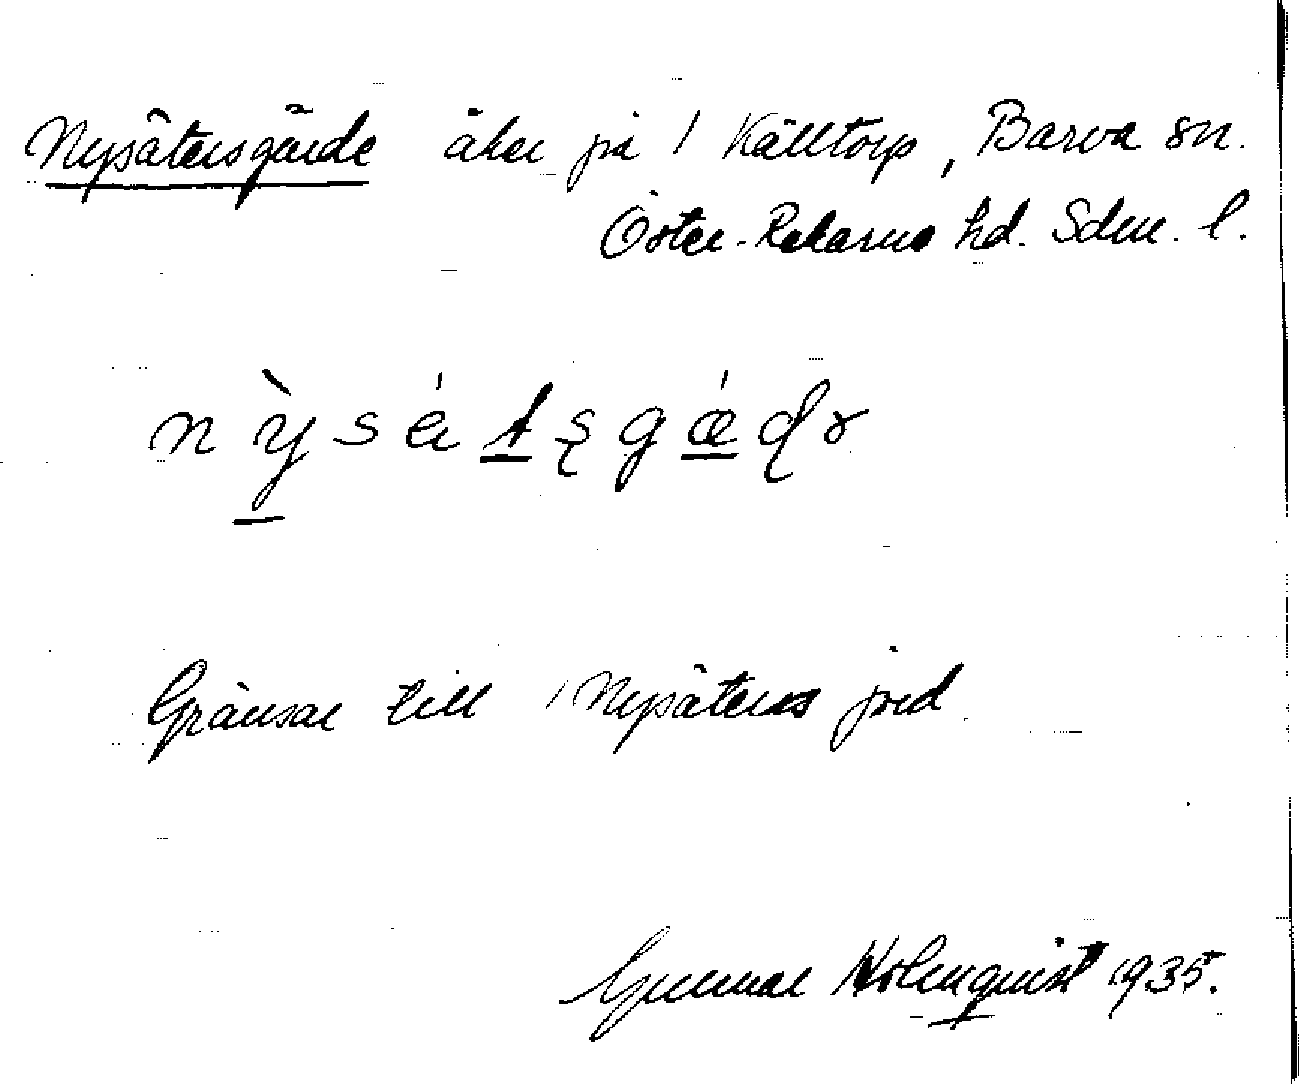 Nysätersgärde åker på / Källtorp, Barva sn.
Öster-Rekarne hd. Sdm. l.
Gränsar till / Nysäters jord
Gunnar Holmqvist 1935.